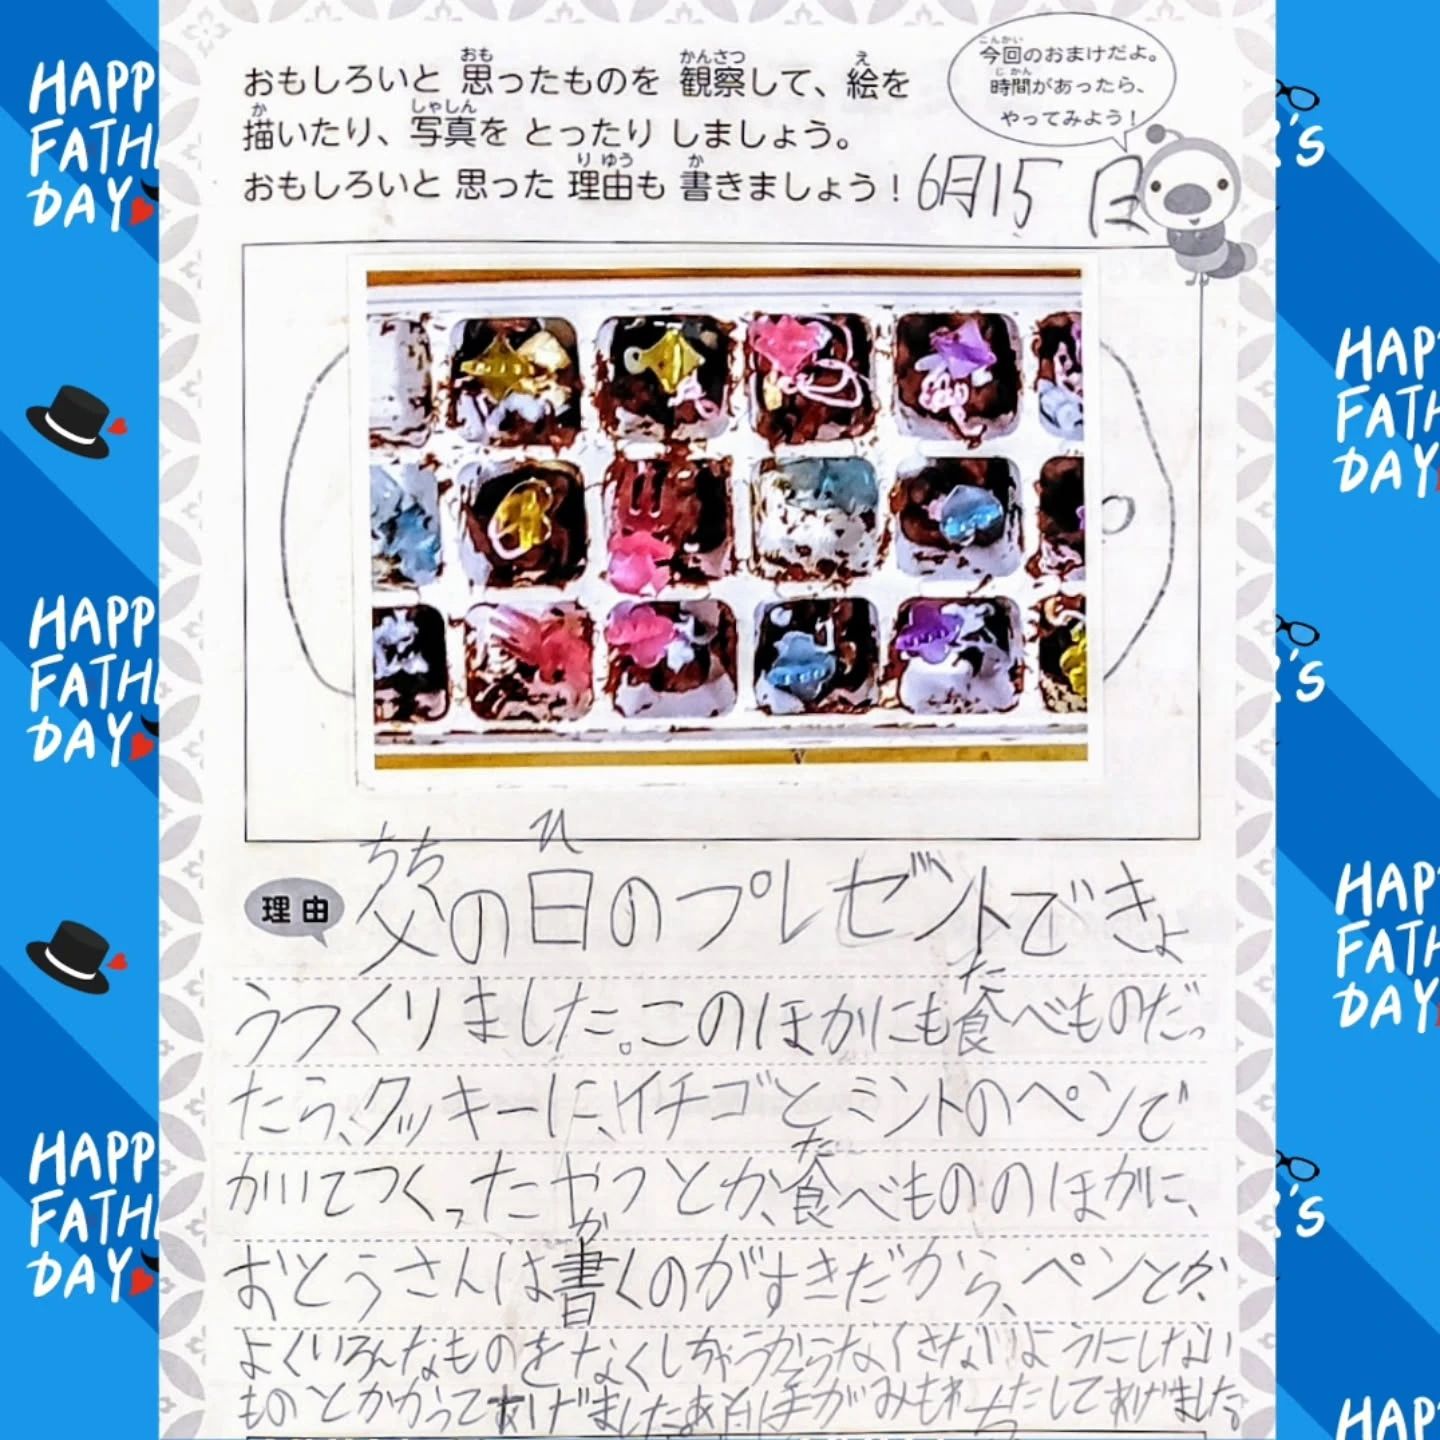 今回のおまけだよ。
時間があったら、
やってみよう！
おもしろいと 思ったものを 観察して、絵を
描いたり、写真を とったり しましょう。
おもしろいと 思った 理由も 書きましょう！
6月15日
理由
父の日のプレゼントできょ
うつくりました。このほかにも食べものだっ
たら、クッキーに、イチゴとミントのペンで
かいてつくったやつとか、食べもののほかに、
おとうさんは書くのがすきだから、ペンとか、
よくいろんなものをなくしちゃうからなくさないようにしない
ものとかかってあげました。あと
してあげました。
HAPPY
FATHER'S
DAY